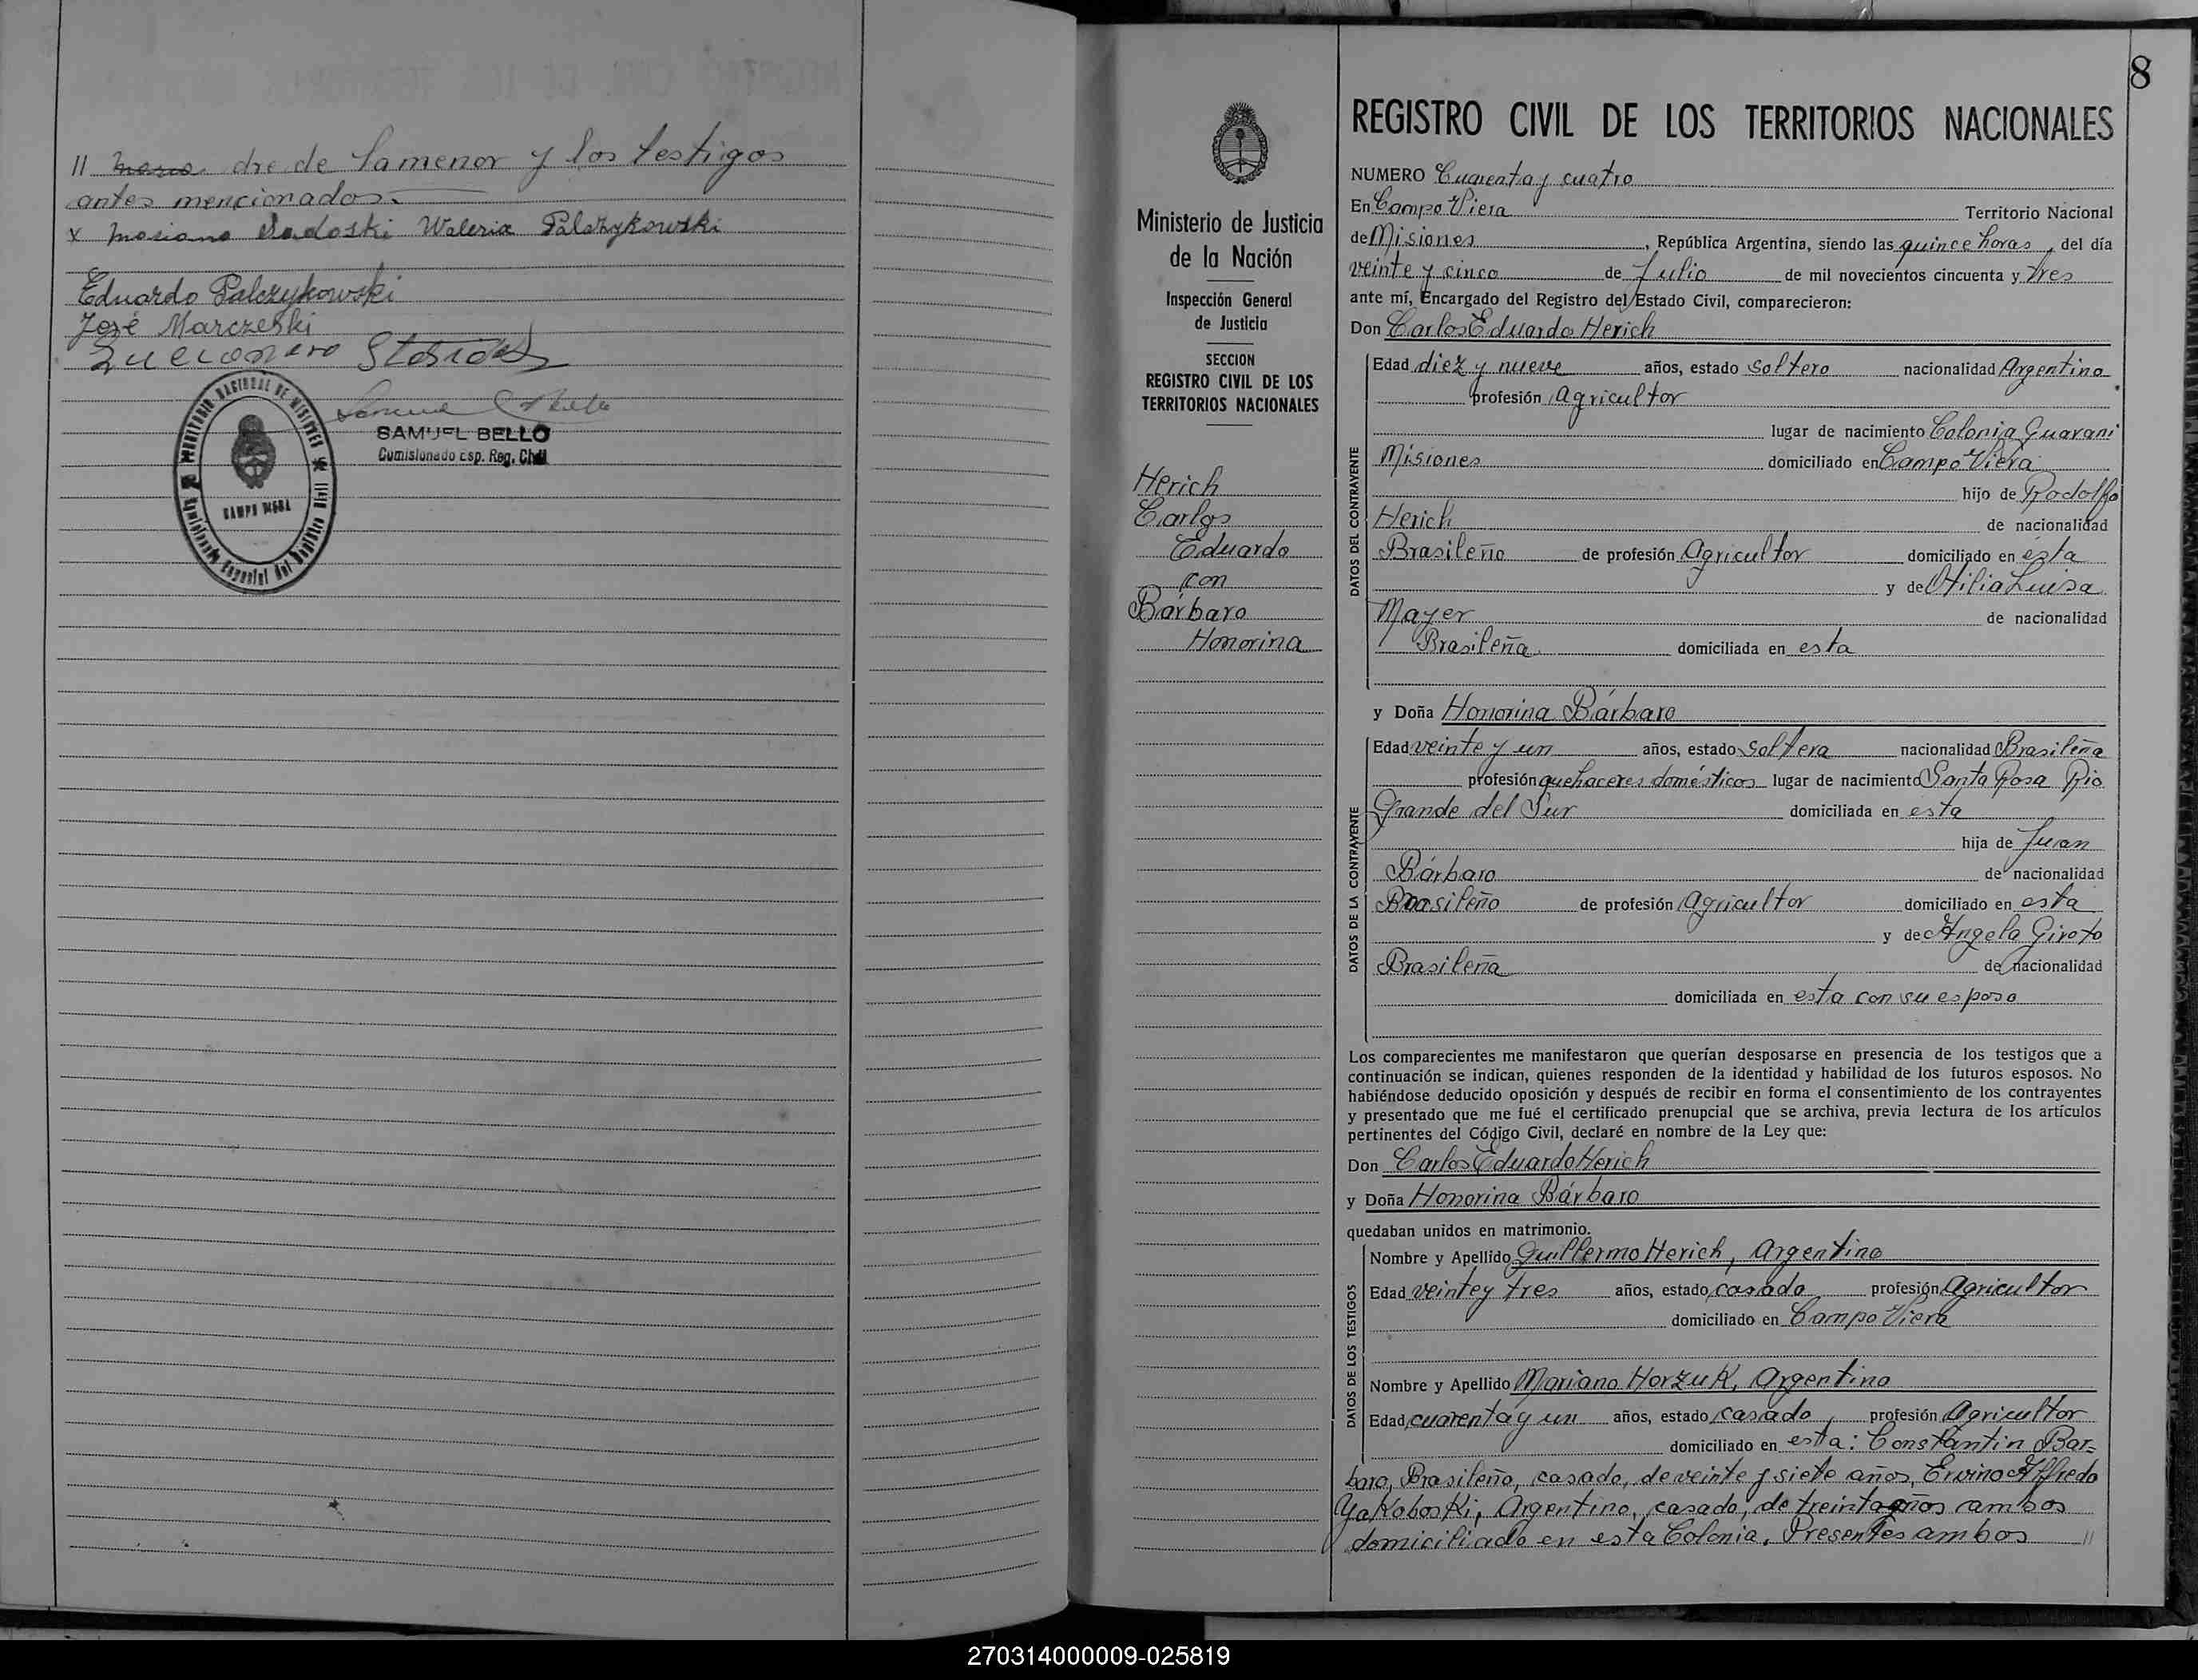 // dre de la menor y los testigos
antes mencionados.
x Mariano Sadoski Waleria Palczykowski
Eduardo Palczykowski
José Marczeski
SAMUEL BELLO
Comisionado Esp. Reg. Civil
CAMPO VIERA
8
REGISTRO CIVIL DE LOS TERRITORIOS NACIONALES
Ministerio de Justicia
de la Nación
Inspección General
de Justicia
SECCION
REGISTRO CIVIL DE LOS
TERRITORIOS NACIONALES
Herich
Carlos
Eduardo
con
Bárbaro
Honorina
NUMERO Cuarenta y cuatro
En Campo Viera Territorio Nacional
de Misiones, República Argentina, siendo las quince horas, del día
veinte y cinco de Julio de mil novecientos cincuenta y tres
ante mí, Encargado del Registro del Estado Civil, comparecieron:
Don Carlos Eduardo Herich
DATOS DEL CONTRAYENTE
Edad diez y nueve años, estado soltero nacionalidad Argentina
profesión Agricultor
lugar de nacimiento Colonia Guarani
Misiones domiciliado en Campo Viera
hijo de Rodolfo
Herich de nacionalidad
Brasileño de profesión Agricultor domiciliado en ésta
y de Otilia Luisa
Mayer de nacionalidad
Brasileña domiciliada en esta
y Doña Honorina Bárbaro
DATOS DE LA CONTRAYENTE
Edad veinte y un años, estado soltera nacionalidad Brasileña
profesión quehaceres domésticos lugar de nacimiento Santa Rosa Rio
Grande del Sur domiciliada en esta
hija de Juan
Bárbaro de nacionalidad
Brasileño de profesión Agricultor domiciliado en esta
y de Angela Giroto
Brasileña de nacionalidad
domiciliada en esta con su esposo
Los comparecientes me manifestaron que querían desposarse en presencia de los testigos que a
continuación se indican, quienes responden de la identidad y habilidad de los futuros esposos. No
habiéndose deducido oposición y después de recibir en forma el consentimiento de los contrayentes
y presentado que me fué el certificado prenupcial que se archiva, previa lectura de los artículos
pertinentes del Código Civil, declaré en nombre de la Ley que:
Don Carlos Eduardo Herich
y Doña Honorina Bárbaro
quedaban unidos en matrimonio.
DATOS DE LOS TESTIGOS
Nombre y Apellido Guillermo Herich, Argentino
Edad veinte y tres años, estado casado profesión Agricultor
domiciliado en Campo Viera
Nombre y Apellido Mariano Horzuk, Argentino
Edad cuarenta y un años, estado casado, profesión Agricultor
domiciliado en esta: Constantin Bar=
baro, Brasileño, casado, de veinte y siete años, Ervino Alfredo
Yakoboski, Argentino, casado, de treinta años ambos
domiciliado en esta Colonia. Presentes ambos //
270314000009-025819